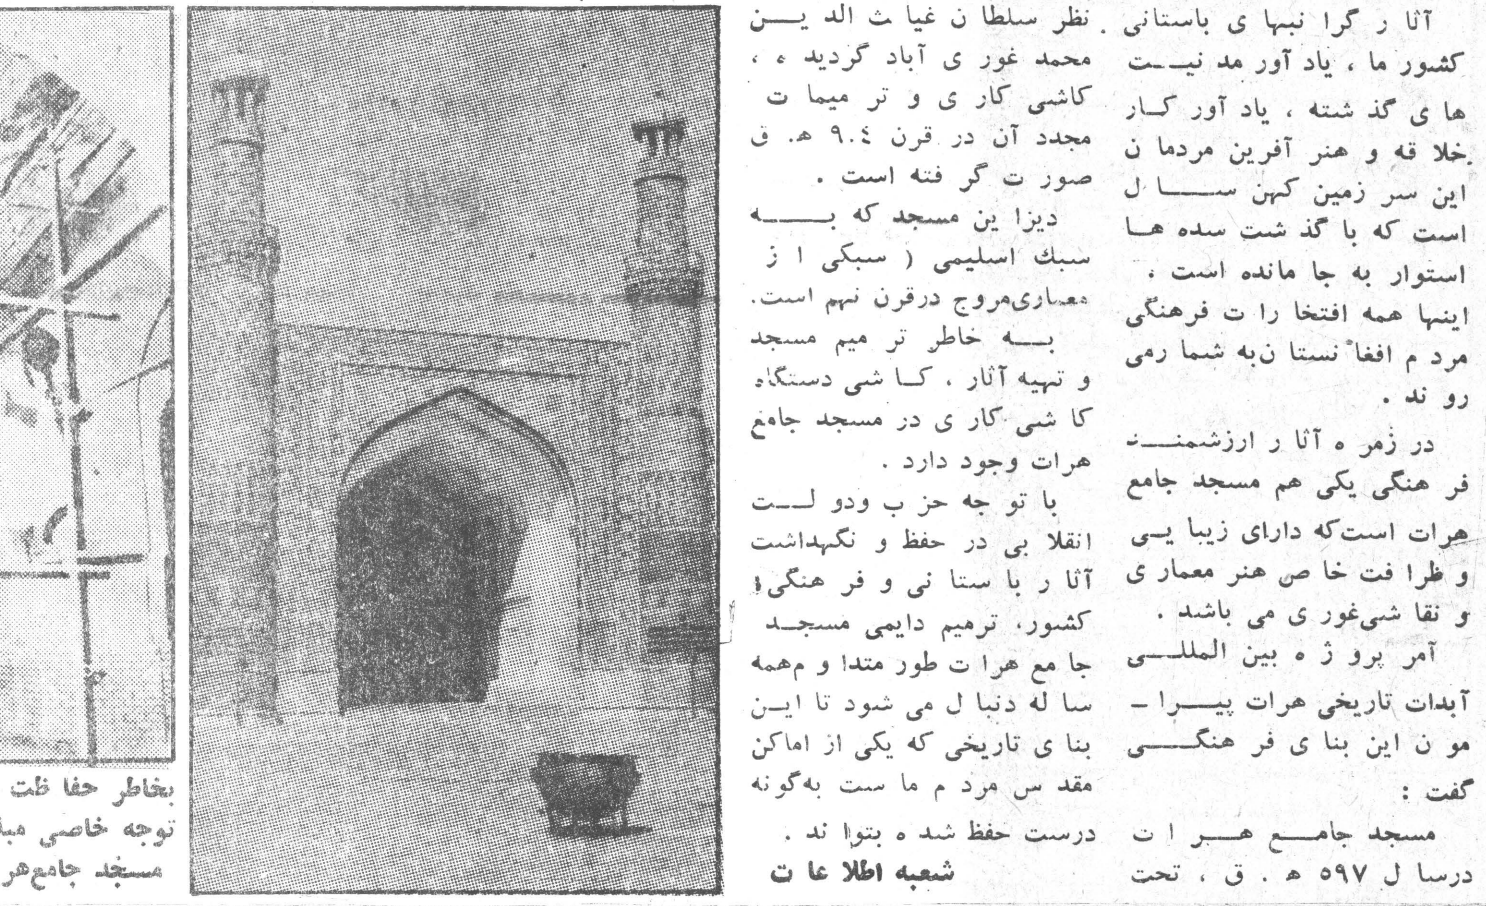 آثا ر گرا نبها ی باستانی
کشور ما ، یاد آور مد نیـت
ها ی گذ شته ، یاد آور کـار
خلا قه و هنر آفرین مردما ن
این سر زمین کهن ســا ل
است که با گذ شت سده هـا
استوار به جا مانده است ،
اینها همه افتخا را ت فرهنگی
مرد م افغا نستا ن‌به شما رمی
رو ند .
در زمر ه آثا ر ارزشمنــد
فر هنگی یکی هم مسجد جامع
هرات است‌که دارای زیبا یـی
و ظرا فت خا ص هنر معمار ی
و نقا شی‌غور ی می باشد .
آمر پرو ژ ه بین المللــی
آبدات تاریخی هرات پیــرا ـ
مو ن این بنا ی فر هنگــی
گفت :
مسجد جامــع هــر ا ت
درسا ل ۵۹۷ ه . ق ، تحت
نظر سلطا ن غیا ث الد یــن
محمد غور ی آباد گردید ه ،
کاشی کار ی و تر میما ت
مجدد آن در قرن ۹.٤ ه. ق
صور ت گر فته است .
دیزا ین مسجد که بـــه
سبك اسلیمی ( سبکی ا ز
معماری‌مروج درقرن نهم است.
بــه خاطر تر میم مسجد
و تهیه آثار ، کـا شی دستگاه
کا شی کار ی در مسجد جامع
هرات وجود دارد .
با تو جه حز ب ودو لــت
انقلا بی در حفظ و نگهداشت
آثا ر با ستا نی و فر هنگی
کشور، ترمیم دایمی مسجــد
جا مع هرا ت طور متدا و م‌همه
سا له دنبا ل می شود تا ایــن
بنا ی تاریخی که یکی از اماکن
مقد س مرد م ما ست به‌گونه
درست حفظ شد ه بتوا ند .
شعبه اطلا عا ت
بخاطر حفا ظت
توجه خاصی مبذ
مسجد جامع‌هر